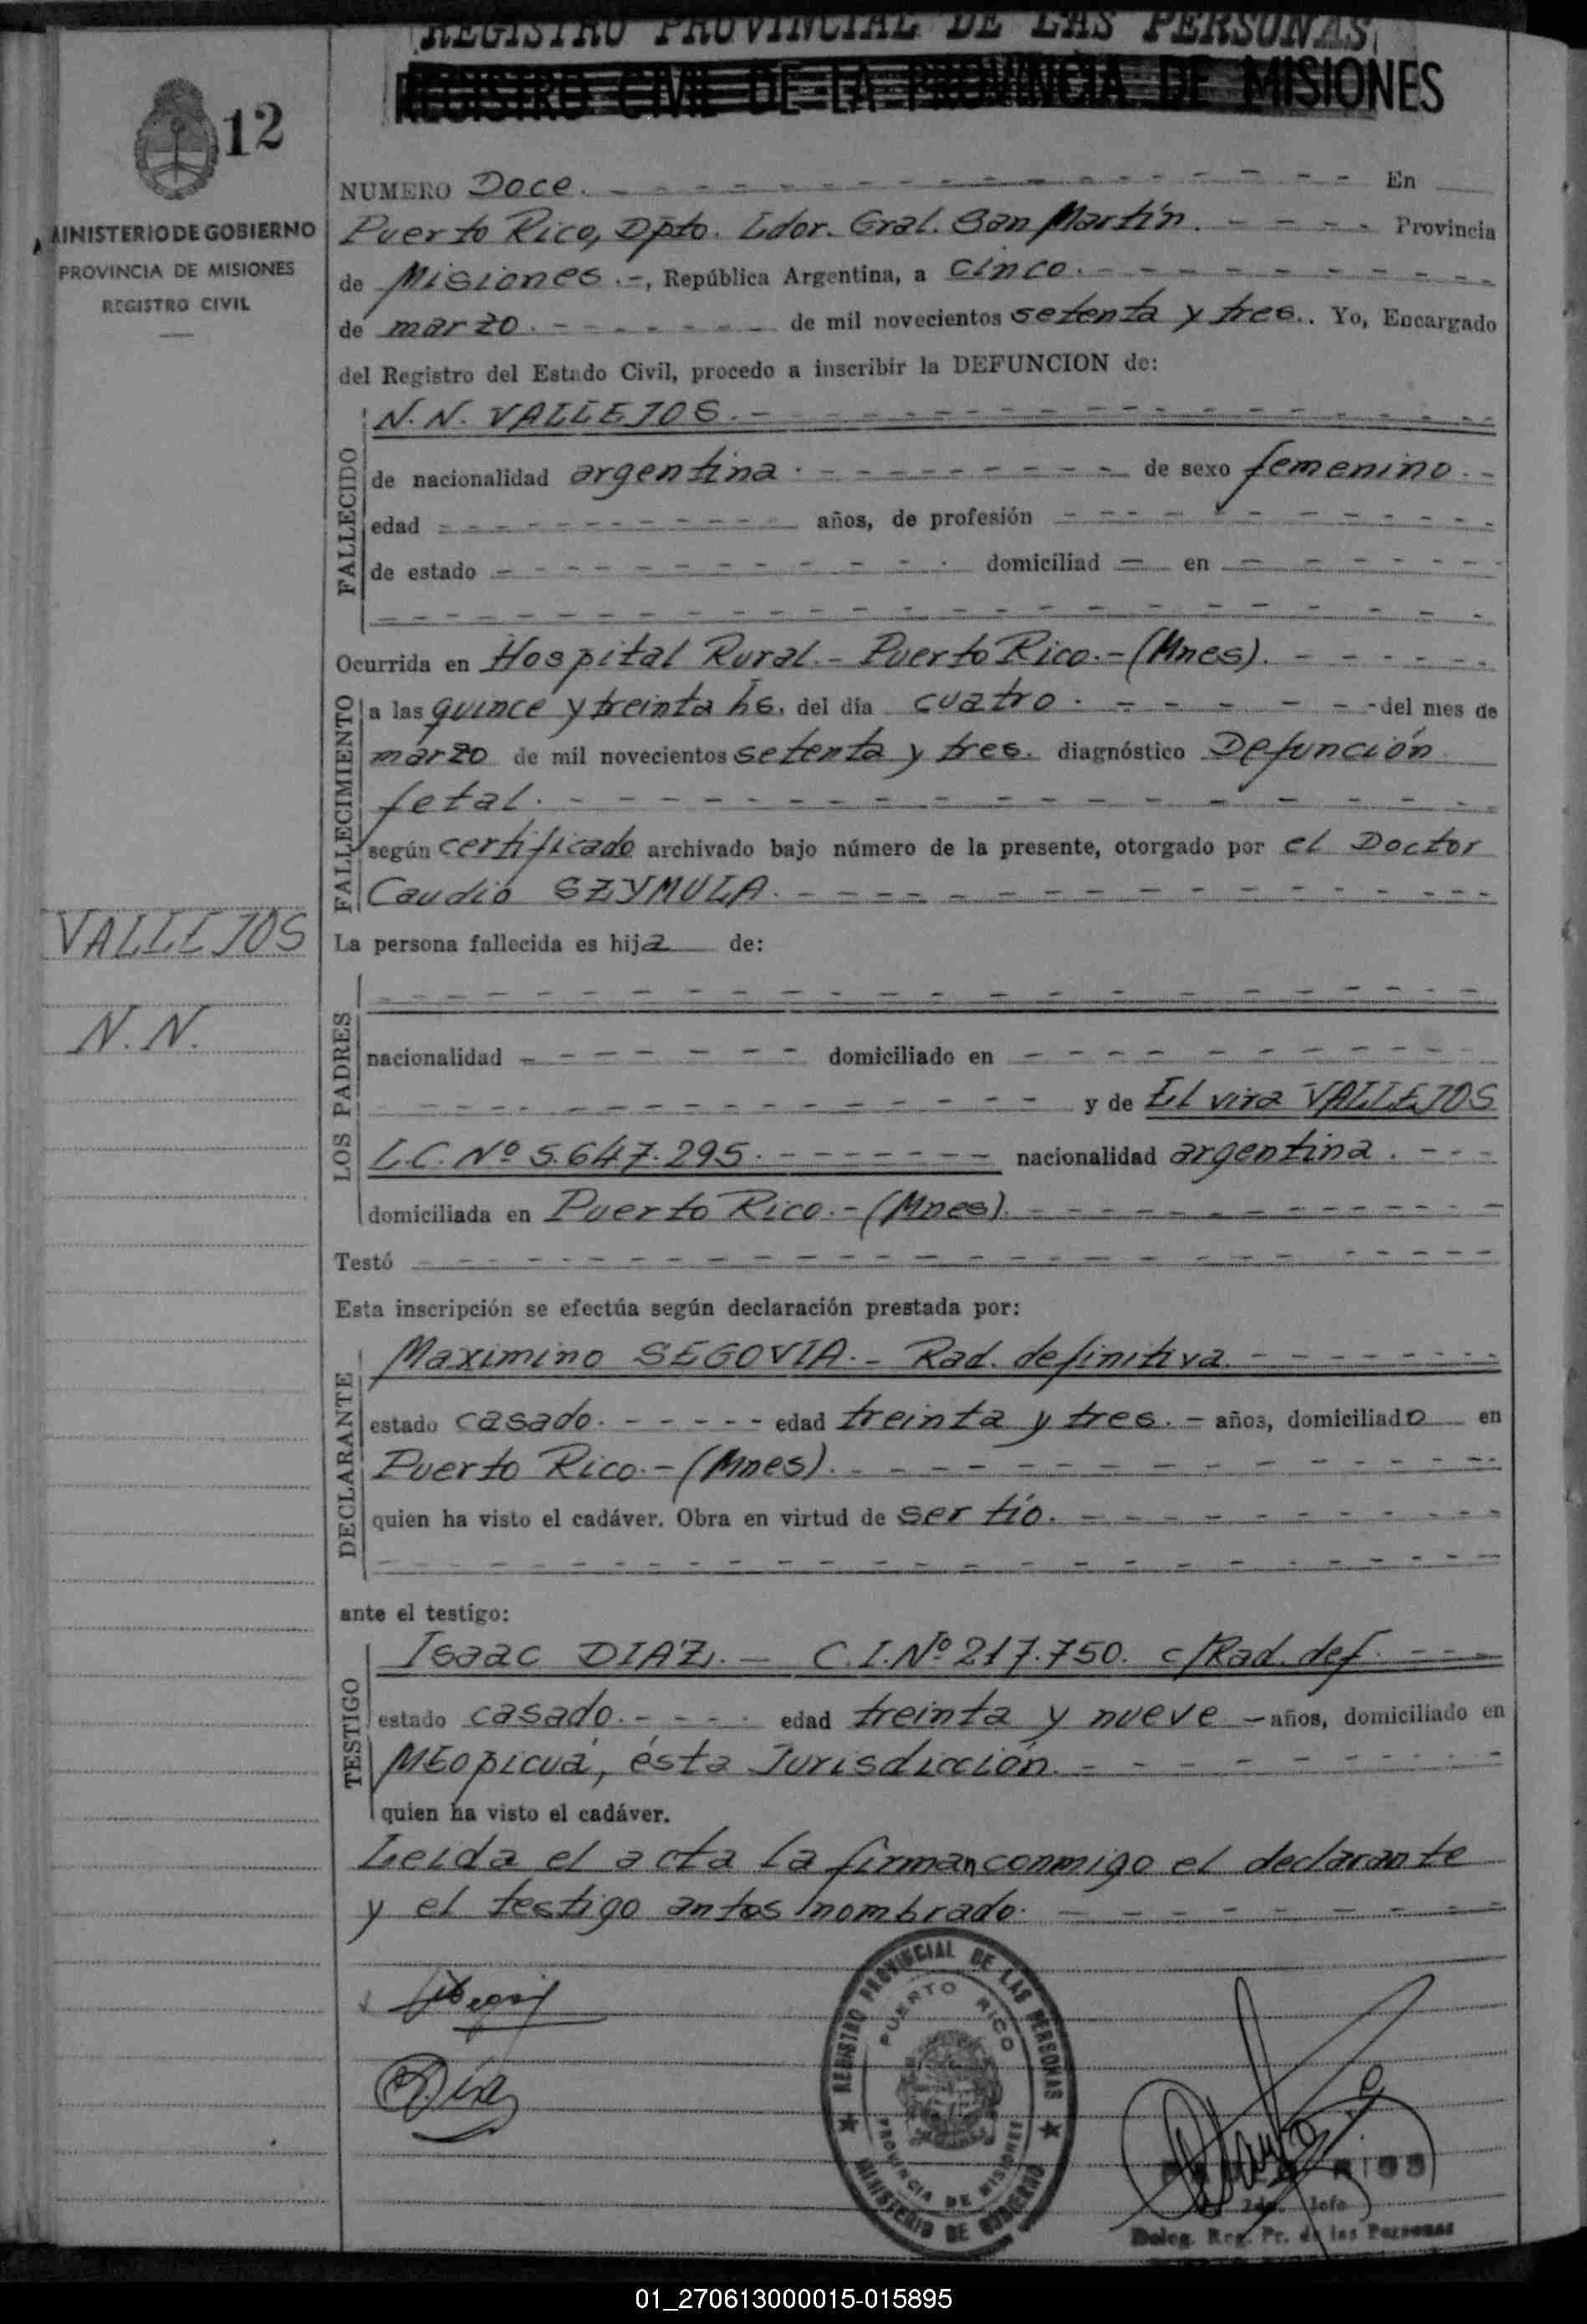 REGISTRO PROVINCIAL DE LAS PERSONAS
REGISTRO CIVIL DE LA PROVINCIA DE MISIONES
12
MINISTERIO DE GOBIERNO
PROVINCIA DE MISIONES
REGISTRO CIVIL
NUMERO Doce. En
Puerto Rico, Dpto. Ldor. Gral. San Martín. Provincia
de Misiones.-, República Argentina, a cinco.
de marzo. de mil novecientos setenta y tres. Yo, Encargado
del Registro del Estado Civil, procedo a inscribir la DEFUNCION de:
N.N. VALLEJOS.-
FALLECIDO
de nacionalidad argentina. de sexo femenino.-
edad años, de profesión
de estado domiciliad en
Ocurrida en Hospital Rural.- Puerto Rico.- (Mnes).
FALLECIMIENTO
a las quince y treinta hs. del día cuatro. del mes de
marzo de mil novecientos setenta y tres. diagnóstico Defunción
fetal.
según certificado archivado bajo número de la presente, otorgado por el Doctor
Caudio SZYMULA.
VALLEJOS
N.N.
La persona fallecida es hija de:
LOS PADRES
nacionalidad domiciliado en
y de Elvira VALLEJOS
L.C. Nº 5.647.295. nacionalidad argentina.
domiciliada en Puerto Rico.- (Mnes).
Testó
Esta inscripción se efectúa según declaración prestada por:
DECLARANTE
Maximino SEGOVIA.- Rad. definitiva.
estado casado. edad treinta y tres.- años, domiciliado en
Puerto Rico.- (Mnes).
quien ha visto el cadáver. Obra en virtud de ser tío.
ante el testigo:
TESTIGO
Isaac DIAZ.- C.I. Nº 217.750. c/Rad. def.
estado casado. edad treinta y nueve - años, domiciliado en
Mbopicuá, ésta Jurisdicción.
quien ha visto el cadáver.
Leida el acta la firman conmigo el declarante
y el testigo antes nombrado.
REGISTRO PROVINCIAL DE LAS PERSONAS
PUERTO RICO
PROVINCIA DE MISIONES
MINISTERIO DE GOBIERNO
Díaz
2do. Jefe
Deleg. Reg. Pr. de las Personas
01_270613000015-015895